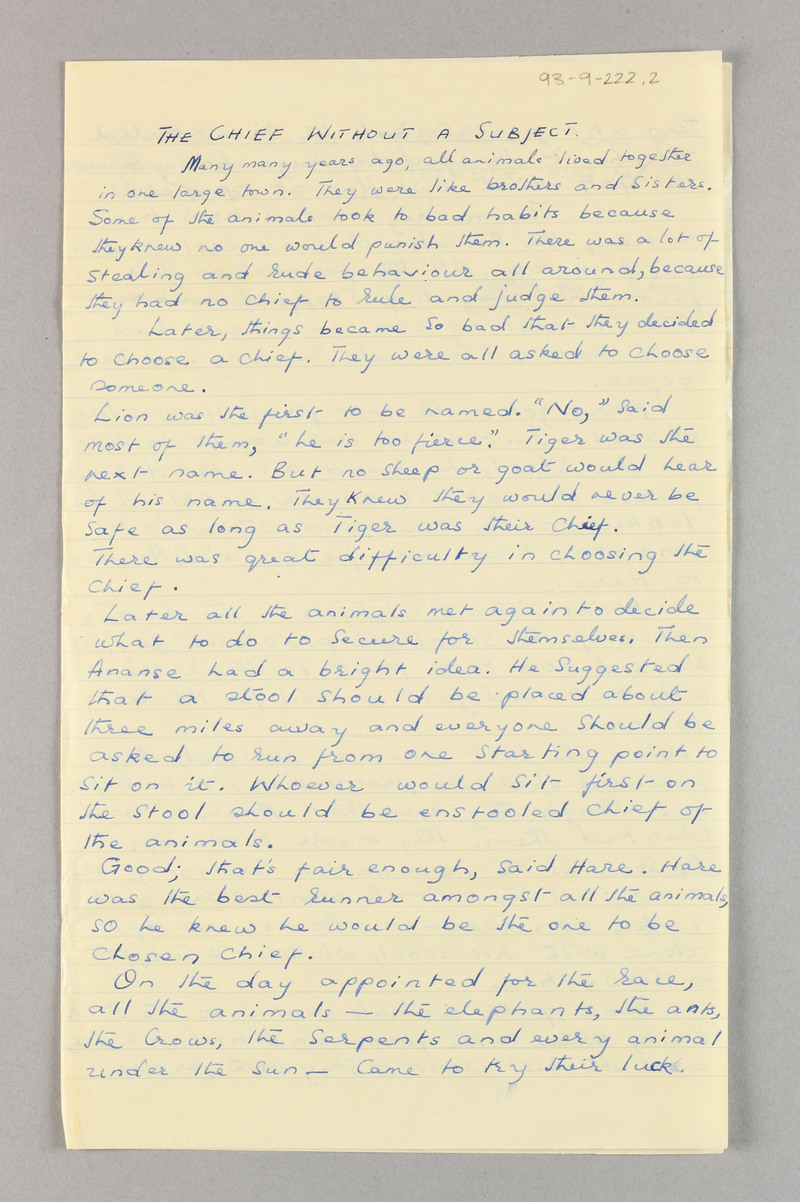 93-9-222.2
THE CHIEF WITHOUT A SUBJECT.
Many many years ago, all animals lived together
in one large town. They were like brothers and Sisters.
Some of the animals took to bad habits because
they knew no one would punish them. There was a lot of
stealing and rude behaviour all around, because
they had no chief to rule and judge them.
Later, things became so bad that they decided
to choose a chief. They were all asked to choose
someone.
Lion was the first to be named. "No," said
most of them, "he is too fierce". Tiger was the
next name. But no sheep or goat would hear
of his name. They knew they would never be
safe as long as Tiger was their Chief.
There was great difficulty in choosing the
chief.
Later all the animals met again to decide
what to do to secure for themselves. Then
Ananse had a bright idea. He suggested
that a stool should be placed about
three miles away and everyone should be
asked to run from one starting point to
sit on it. Whoever would sit first on
the stool should be enstooled chief of
the animals.
Good; that's fair enough, said Hare. Hare
was the best runner amongst all the animals,
so he knew he would be the one to be
chosen chief.
On the day appointed for the race,
all the animals — the elephants, the ants,
the crows, the serpents and every animal
under the sun — came to try their luck.